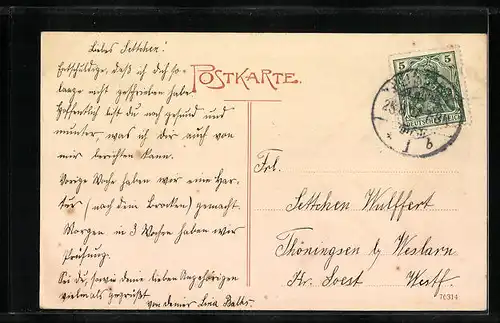 Liebes Settchen!
Entschuldige, daß ich dich so
lange nicht geschrieben habe.
Hoffentlich bist du noch gesund und
munter, was ich dir auch von
mir berichten kann.
Vorige Woche haben wir eine Har-
tur (nach dem Brocken) gemacht.
Morgen in 3 Wochen haben wir
Prüfung.
Sei du, sowie deine lieben Angehörigen
vielmals gegrüßt
von deiner Lina
POSTKARTE.
5 5
DEUTSCHES REICH
Frl.
Settchen Wulffert
Thöningsen b/ Westarn
Kr. Soest Westf.
76314